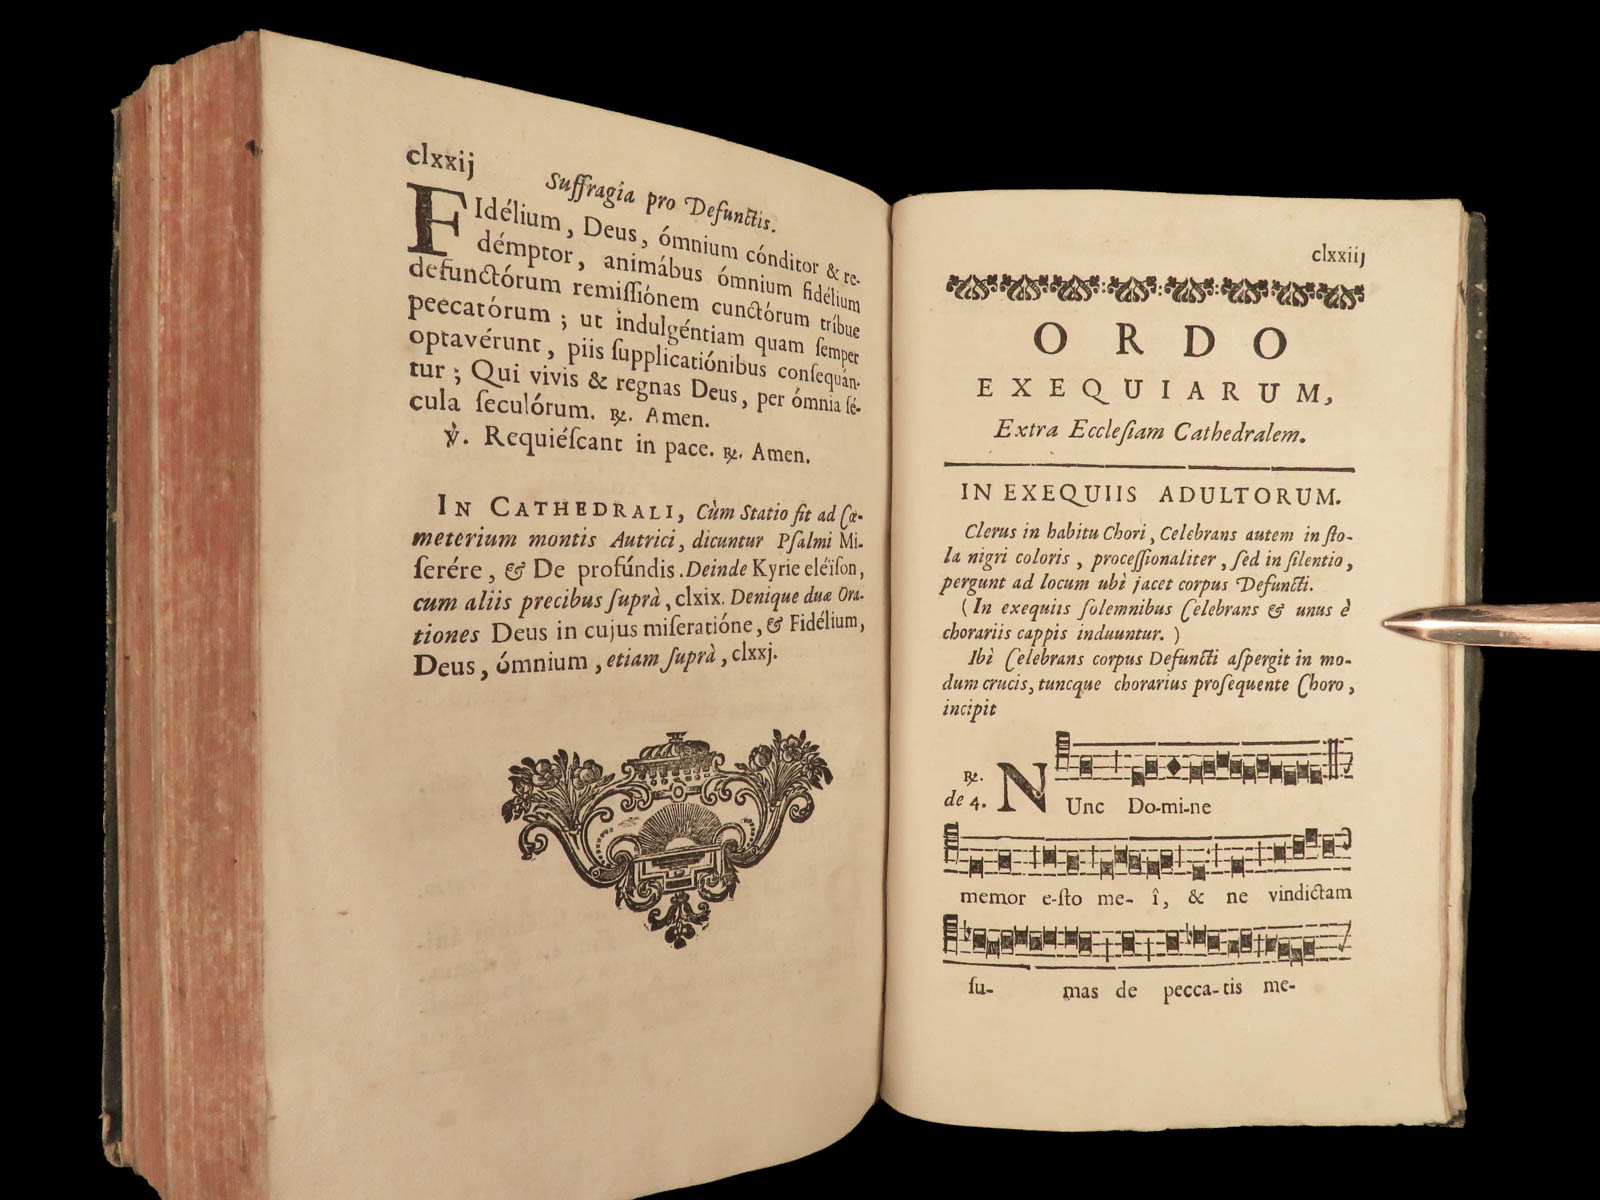 clxxij
Suffragia pro Defunctis.
FIdélium, Deus, ómnium cónditor & re-
démptor, animábus ómnium fidélium
defunctórum remiſſiónem cunctórum tríbue
peecatórum ; ut indulgéntiam quam ſemper
optavérunt, piis ſupplicatiónibus conſequán-
tur ; Qui vivis & regnas Deus, per ómnia ſé-
cula ſeculórum. ℟. Amen.
℣. Requiéſcant in pace. ℟. Amen.
IN CATHEDRALI, Cùm Statio fit ad Cœ-
meterium montis Autrici, dicuntur Pſalmi Mi-
ſerére, & De profúndis. Deinde Kyrie eléiſon,
cum aliis precibus ſuprà, clxix. Denique duæ Ora-
tiones Deus in cujus miſeratióne, & Fidélium,
Deus, ómnium, etiam ſuprà, clxxj.
clxxiij
ORDO
EXEQUIARUM,
Extra Eccleſiam Cathedralem.
IN EXEQUIIS ADULTORUM.
Clerus in habitu Chori, Celebrans autem in ſto-
la nigri coloris, proceſſionaliter, ſed in ſilentio,
pergunt ad locum ubì jacet corpus Defuncti.
(In exequiis ſolemnibus Celebrans & unus è
chorariis cappis induuntur.)
Ibì Celebrans corpus Defuncti aſpergit in mo-
dum crucis, tuncque chorarius proſequente Choro,
incipit
℟.
de 4. NUnc Do-mi-ne
memor e-ſto me- î, & ne vindictam
ſu- mas de pecca-tis me-